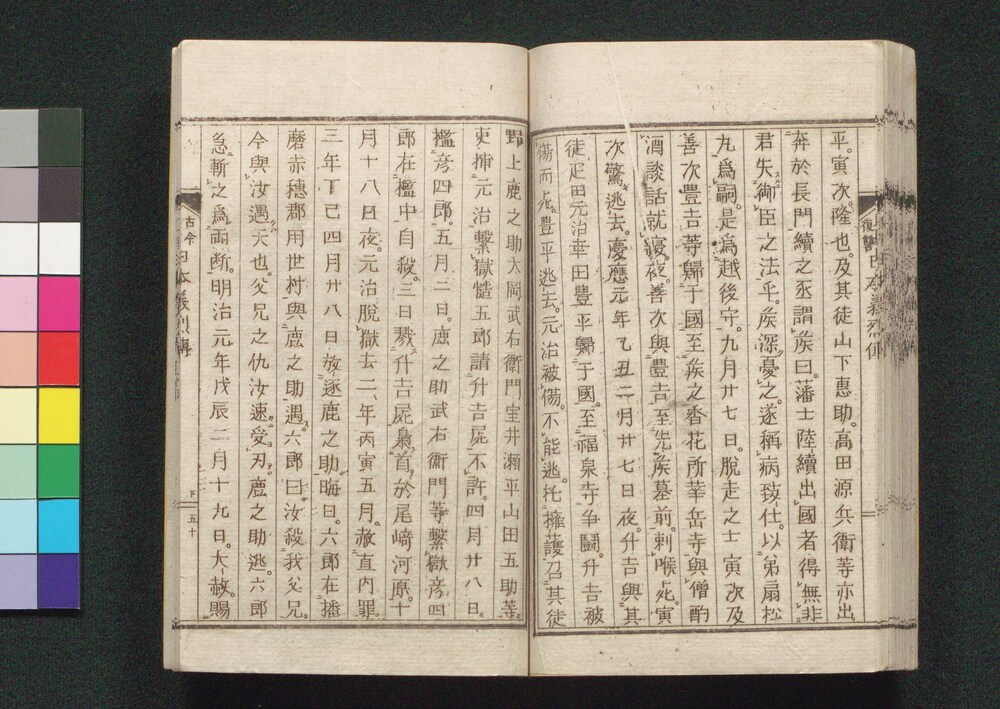 平。寅次。隆也。及其徒山下惠助。高田源兵衛等亦出
奔於長門續之丞謂矦曰。藩士陸續出國者得無非
君失御臣之法乎。矦深憂之。遂稱病致仕。以弟扇松
丸爲嗣。是爲越後守。九月廿七日。脫走之士寅次及
善次豐吉等歸于國至矦之香花所華岳寺與僧酌
酒談話就寢。夜。善次與豐吉至先矦墓前。刺喉死。寅
次驚逃去。慶應元年乙丑二月廿七日夜。升吉與其
徒疋田元治幸田豐平歸于國。至福泉寺爭鬪。升吉被
傷而死。豐平逃去。元治被傷。不能逃。托擁護召其徒
野上鹿之助大岡武右衛門室井瀬平山田五助等。
吏捕元治繫獄慥五郎請升吉屍不許。四月廿八日。
檻彥四郎。五月二日。鹿之助武右衛門等繫獄彥四
郎在檻中自殺。三日戮升吉屍梟首於尾﨑河原。十
月十八日夜。元治脫獄去二年丙寅五月。赦直内罪
三年丁己四月廿八日放逐鹿之助晦日。六郎在播
磨赤穗郡用世村與鹿之助遇。六郎曰。汝殺我父兄。
今與汝遇天也。父兄之仇汝速受刃。鹿之助逃。六郎
急斬之爲兩斷。明治元年戊辰二月十九日。大赦賜
古今日本義烈傳
下 五十